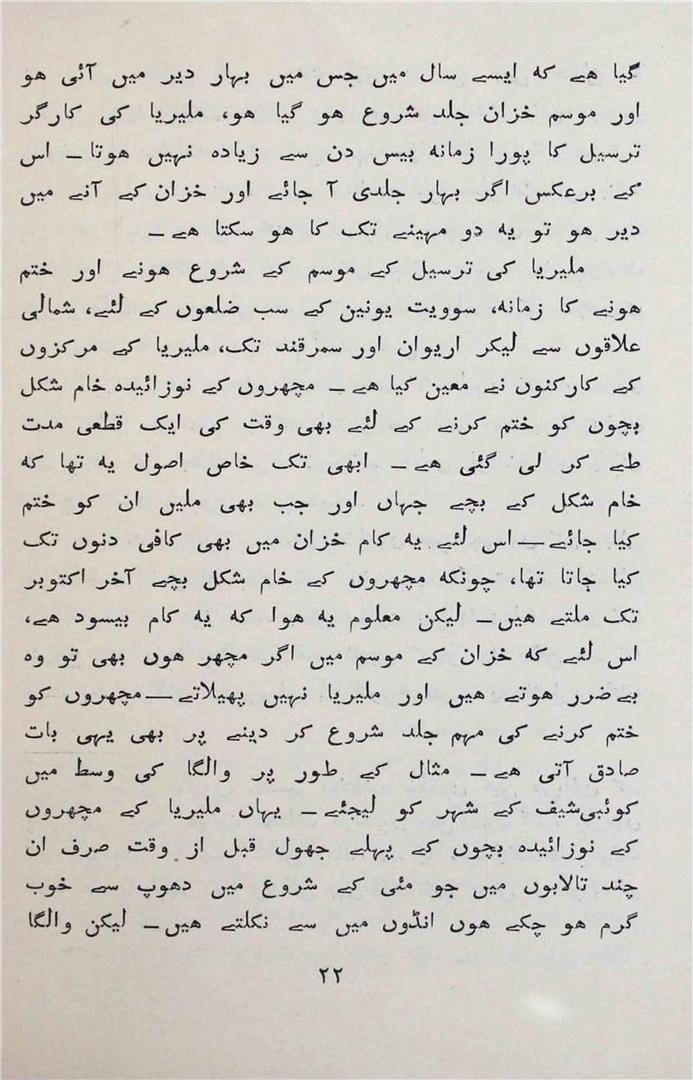 گیا ھے کہ ایسے سال میں جس میں بہار دیر میں آئی ھو
اور موسم خزاں جلد شروع ھو گیا ھو، ملیریا کی کارگر
ترسیل کا پورا زمانہ بیس دن سے زیادہ نہیں ھوتا۔ اس
کے برعکس اگر بہار جلدی آ جائے اور خزاں کے آنے میں
دیر ھو تو یہ دو مہینے تک کا ھو سکتا ھے۔
ملیریا کی ترسیل کے موسم کے شروع ھونے اور ختم
ھونے کا زمانہ، سوویت یونین کے سب ضلعوں کے لئے، شمالی
علاقوں سے لیکر اریوان اور سمرقند تک، ملیریا کے مرکزوں
کے کارکنوں نے معین کیا ھے۔ مچھروں کے نوزائیدہ خام شکل
بچوں کو ختم کرنے کے لئے بھی وقت کی ایک قطعی مدت
طے کر لی گئی ھے۔ ابھی تک خاص اصول یہ تھا کہ
خام شکل کے بچے جہاں اور جب بھی ملیں ان کو ختم
کیا جائے۔ اس لئے یہ کام خزاں میں بھی کافی دنوں تک
کیا جاتا تھا، چونکہ مچھروں کے خام شکل بچے آخر اکتوبر
تک ملتے ھیں۔ لیکن معلوم یہ ھوا کہ یہ کام بیسود ھے،
اس لئے کہ خزاں کے موسم میں اگر مچھر ھوں بھی تو وہ
بےضرر ھوتے ھیں اور ملیریا نہیں پھیلاتے۔ مچھروں کو
ختم کرنے کی مہم جلد شروع کر دینے پر بھی یہی بات
صادق آتی ھے۔ مثال کے طور پر والگا کی وسط میں
کوئبی‌شیف کے شہر کو لیجئے۔ یہاں ملیریا کے مچھروں
کے نوزائیدہ بچوں کے پہلے جھول قبل از وقت صرف ان
چند تالابوں میں جو مئی کے شروع میں دھوپ سے خوب
گرم ھو چکے ھوں انڈوں میں سے نکلتے ھیں۔ لیکن والگا
۲۲